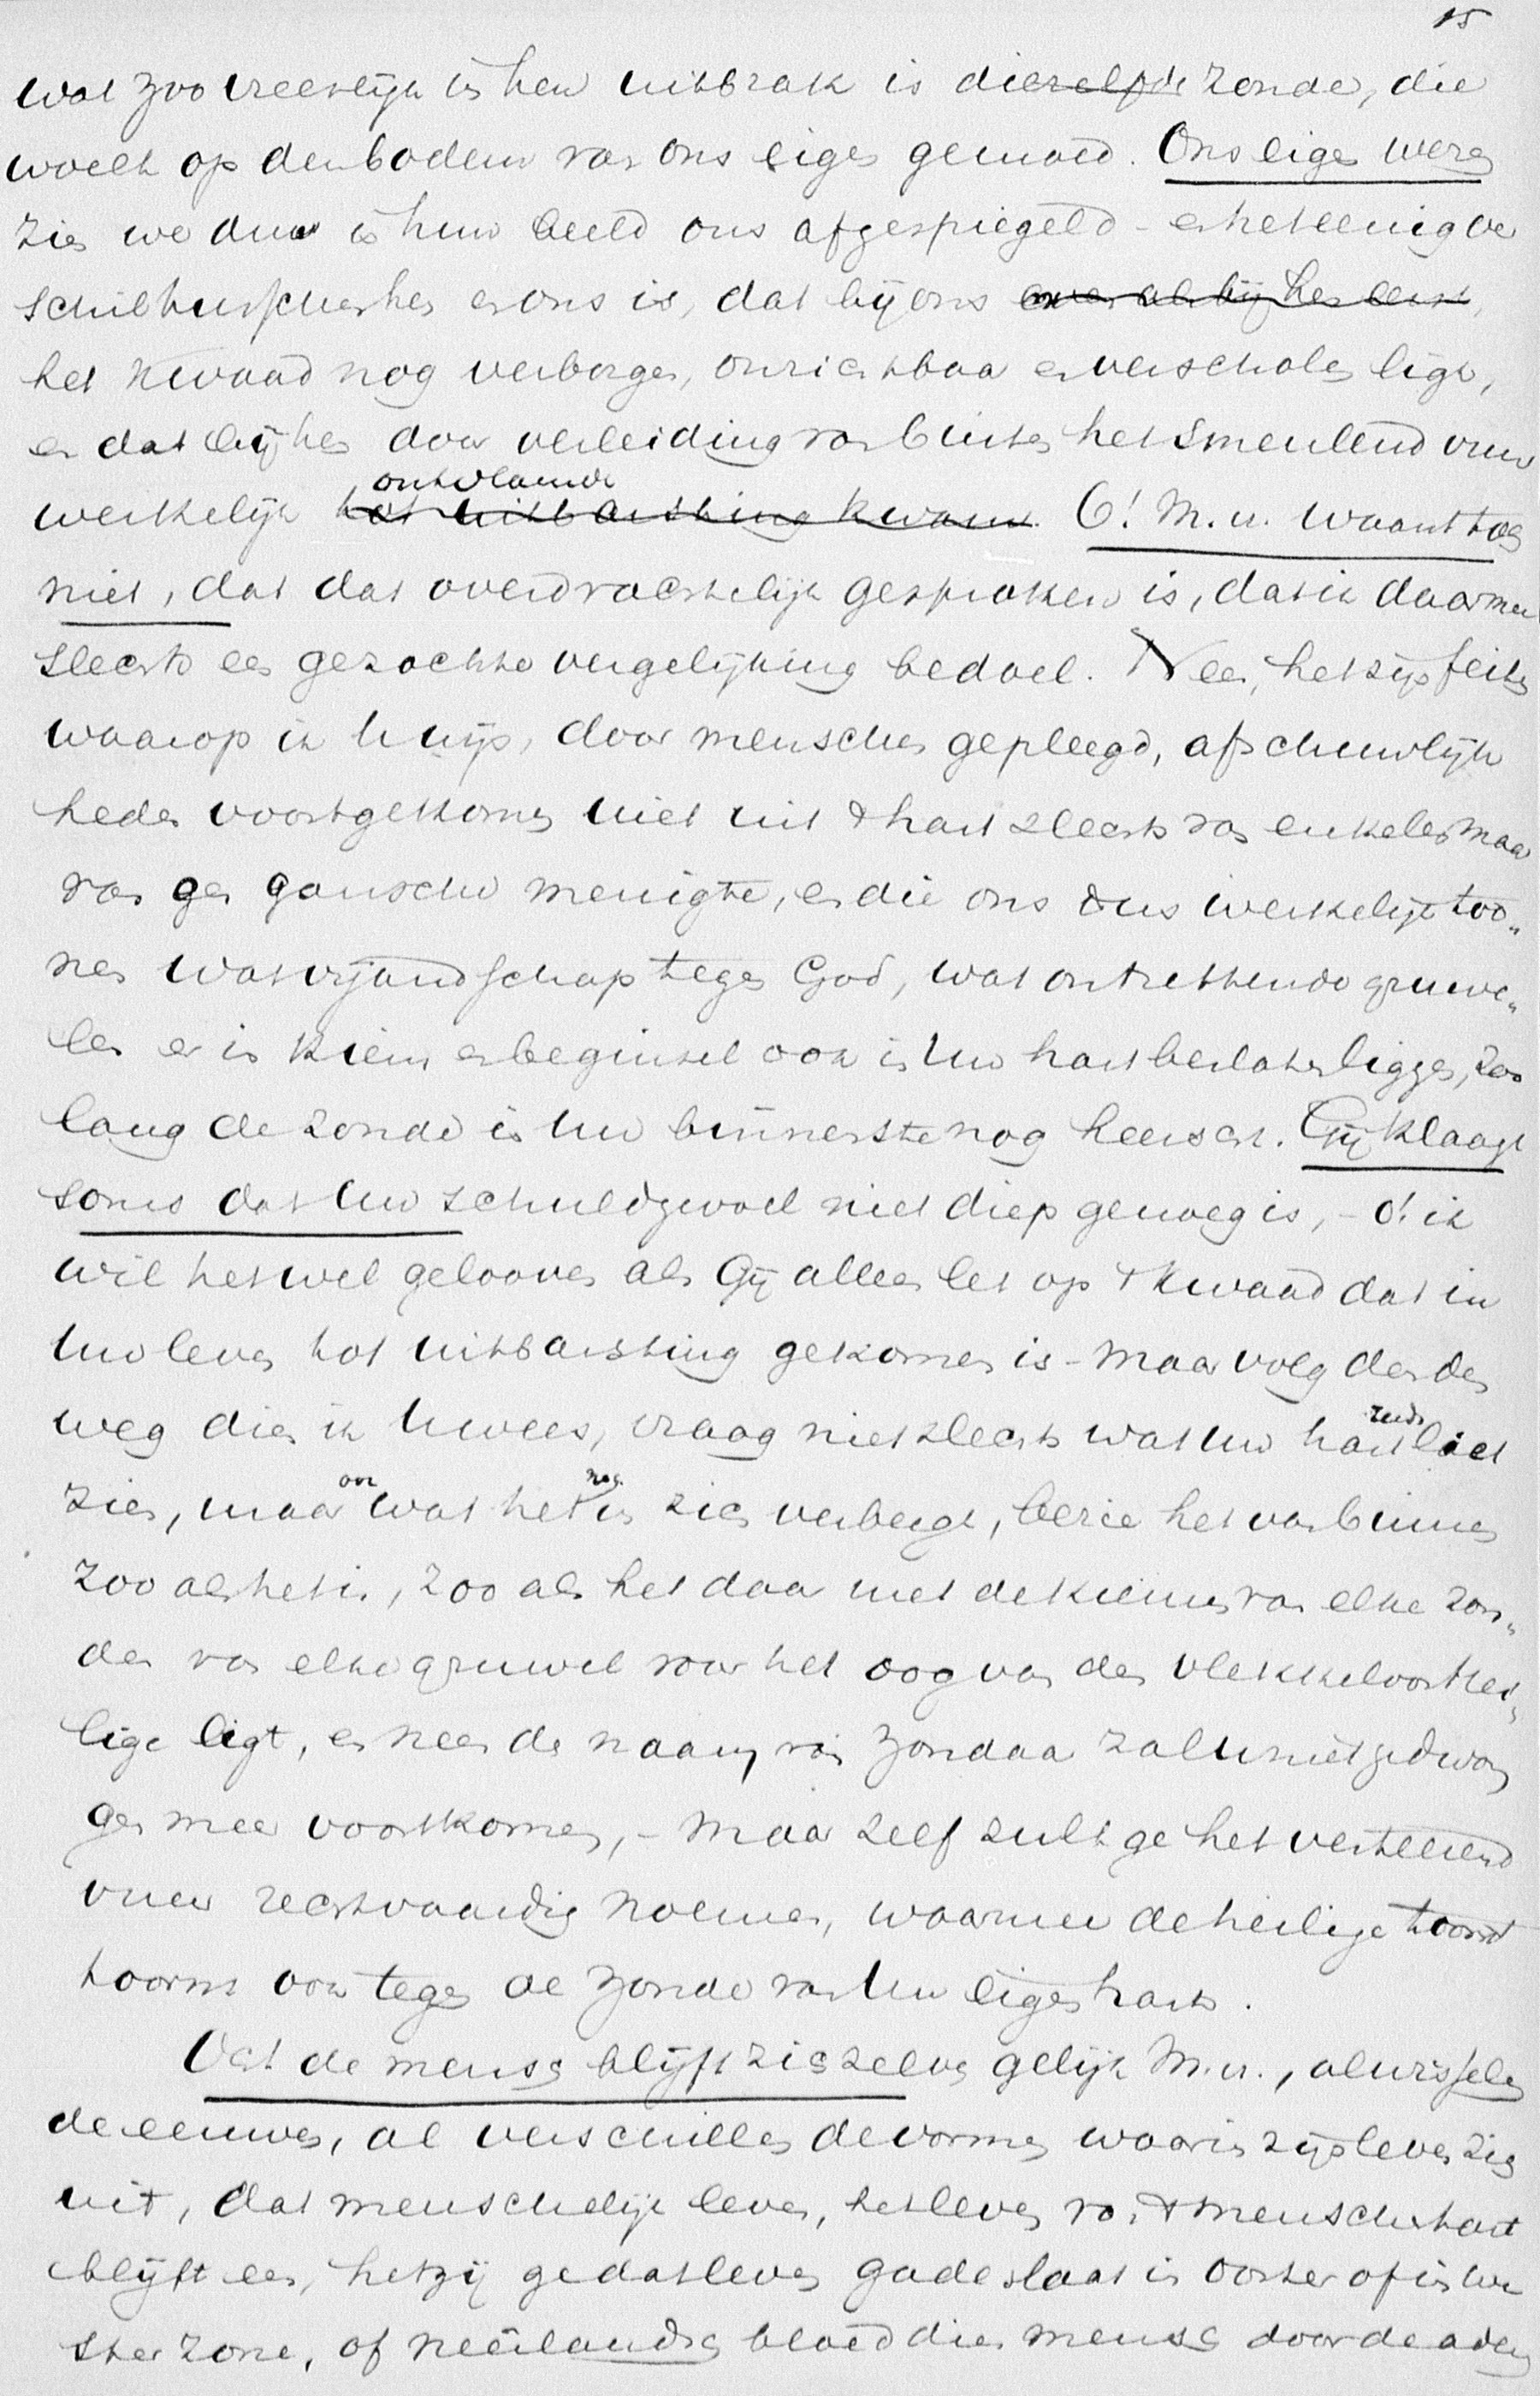 15
wat zoo vreeslijk in hen uitbrak is diezelfde zonde, die
woelt op den bodem van ons eigen gemoed. Ons eigen wezen
zien we dus in hun beeld ons afgespiegeld - en het eenig ver
schil tusschen hen en ons is, dat bij ons
het kwaad nog verborgen, onzichtbaar en verscholen ligt,
en dat bij hen door verleiding van buiten het smeulend vuur
werkelijk tot uitbarsting kwam. ontvlamde O! M.u. waant toch
niet, dat dat overdrachtelijk gesproken is, dat ik daarmee
slechts een gezochte vergelijking bedoel. Neen, het zijn feiten
waarop ik u wijs, door menschen gepleegd, afschuwlijk
heden voortgekomen niet uit 't hart slechts van enkelen maar
van een gansche menigte, en die ons dus werkelijk too„
nen wat vijandschap tegen God, wat ontzettende gruwe„
len er in kiem en beginsel ook in uw hart besloten liggen, zoo
lang de zonde in uw binnenste nog heerscht. Gij klaagt
soms dat uw schuldgevoel niet diep genoeg is, - o! ik
wil het wel gelooven als Gij alleen let op 't kwaad dat in
uw leven tot uitbarsting gekomen is - maar volg den den
weg dien ik u wees, vraag niet slechts wat uw hart reeds liet
zien, maar ook wat het nog in zich verbergt, bezie het van binnen
zoo als het is, zoo als het daar met de kiemen van elke zon„
den van elke gruwel voor het oog van den vlekkeloos Hei„
lige ligt, en neen de naam van zondaar zal u niet gedwon
gen meer voorkomen, - maar zelf zult ge het verteerend
vuur rechtvaardig noemen, waarmee de heilige toorn
toornt ook tegen de zonde van uw eigen hart.
Och de mensch blijft zich zelven gelijk M.u., al wisselen
de eeuwen, al verschillen de vormen waarin zijn leven zich
uit, dat menschelijk leven, het leven van 't menschenhart
blijft een, hetzij ge dat leven gadeslaat in ooster of in we
ster zone, of neêrlandsch bloed dien mensch door de aderen